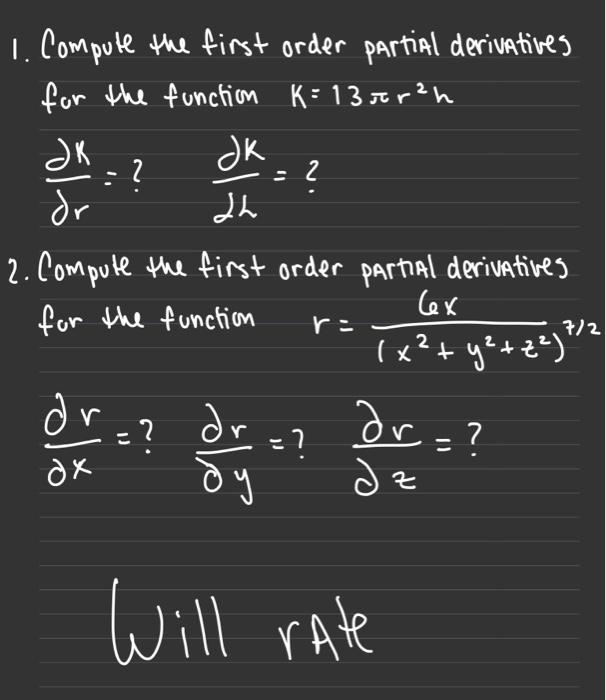 1. Compute the first order partial derivatives
for the function K = 13 π r² h
∂K/∂r = ? ∂K/∂h = ?
2. Compute the first order partial derivatives
for the function r = 6x/(x² + y² + z²)^7/2
∂r/∂x = ? ∂r/∂y = ? ∂r/∂z = ?
Will rate